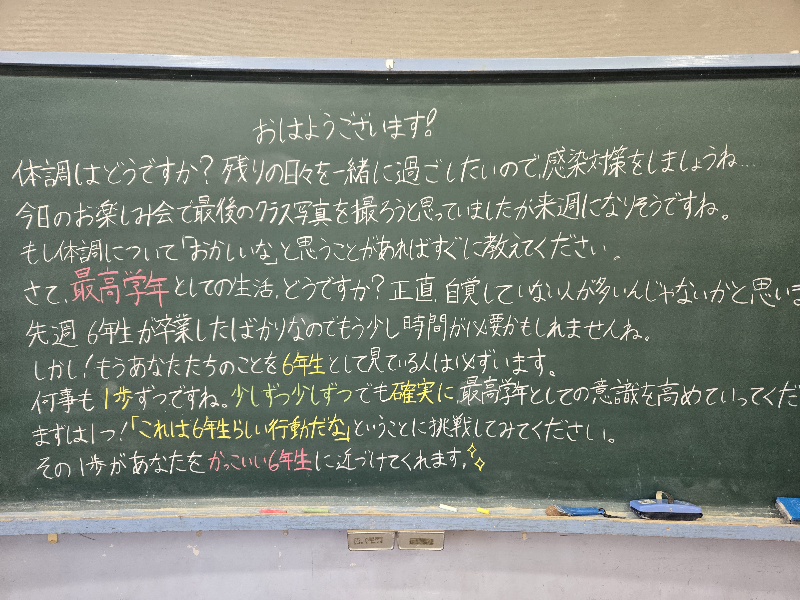 おはようございます!
体調はどうですか?残りの日々を一緒に過ごしたいので、感染対策をしましょうね…
今日のお楽しみ会で最後のクラス写真を撮ろうと思っていましたが来週になりそうですね。
もし体調について「おかしいな」と思うことがあればすぐに教えてください。
さて、最高学年としての生活、どうですか?正直、自覚していない人が多いんじゃないかと思いま
先週6年生が卒業したばかりなのでもう少し時間が必要かもしれませんね。
しかし!もうあなたたちのことを6年生として見ている人は必ずいます。
何事も1歩ずつですね。少しずつ少しずつでも確実に、最高学年としての意識を高めていってくだ
まずは1つ!「これは6年生らしい行動だな」ということに挑戦してみてください。
その1歩があなたをかっこいい6年生に近づけてくれます。